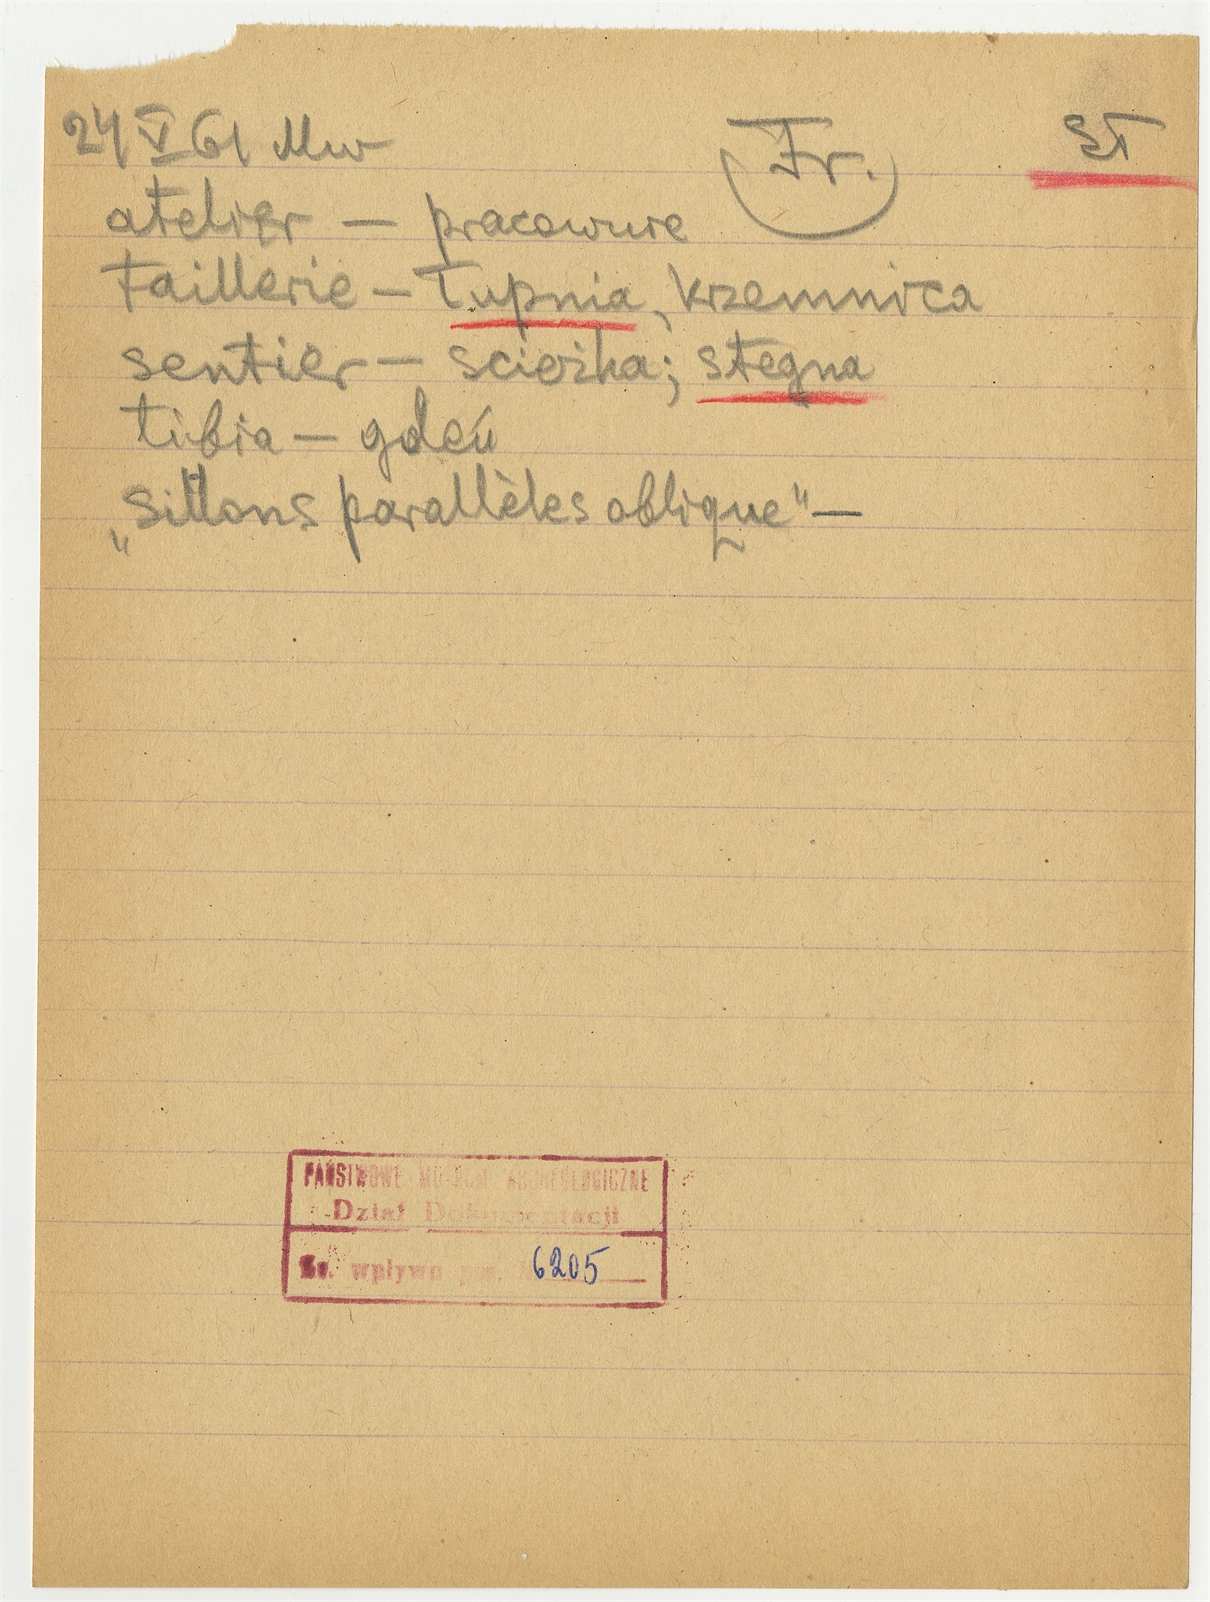 24 V 61 Mw Fr. St
atelier — pracownie
taillerie — łupnia, krzemnica
sentier — ścieżka; stegna
tibia — gdeń
„Sillons parallèles oblique" —
PAŃSTWOWE MUZEUM ARCHEOLOGICZNE
Dział Dokumentacji
wpływu 6205